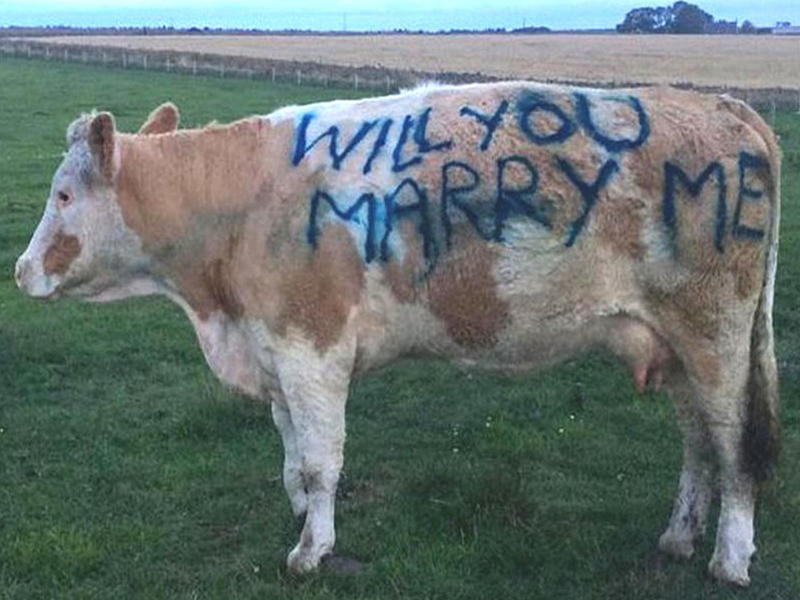 WILL YOU
MARRY ME